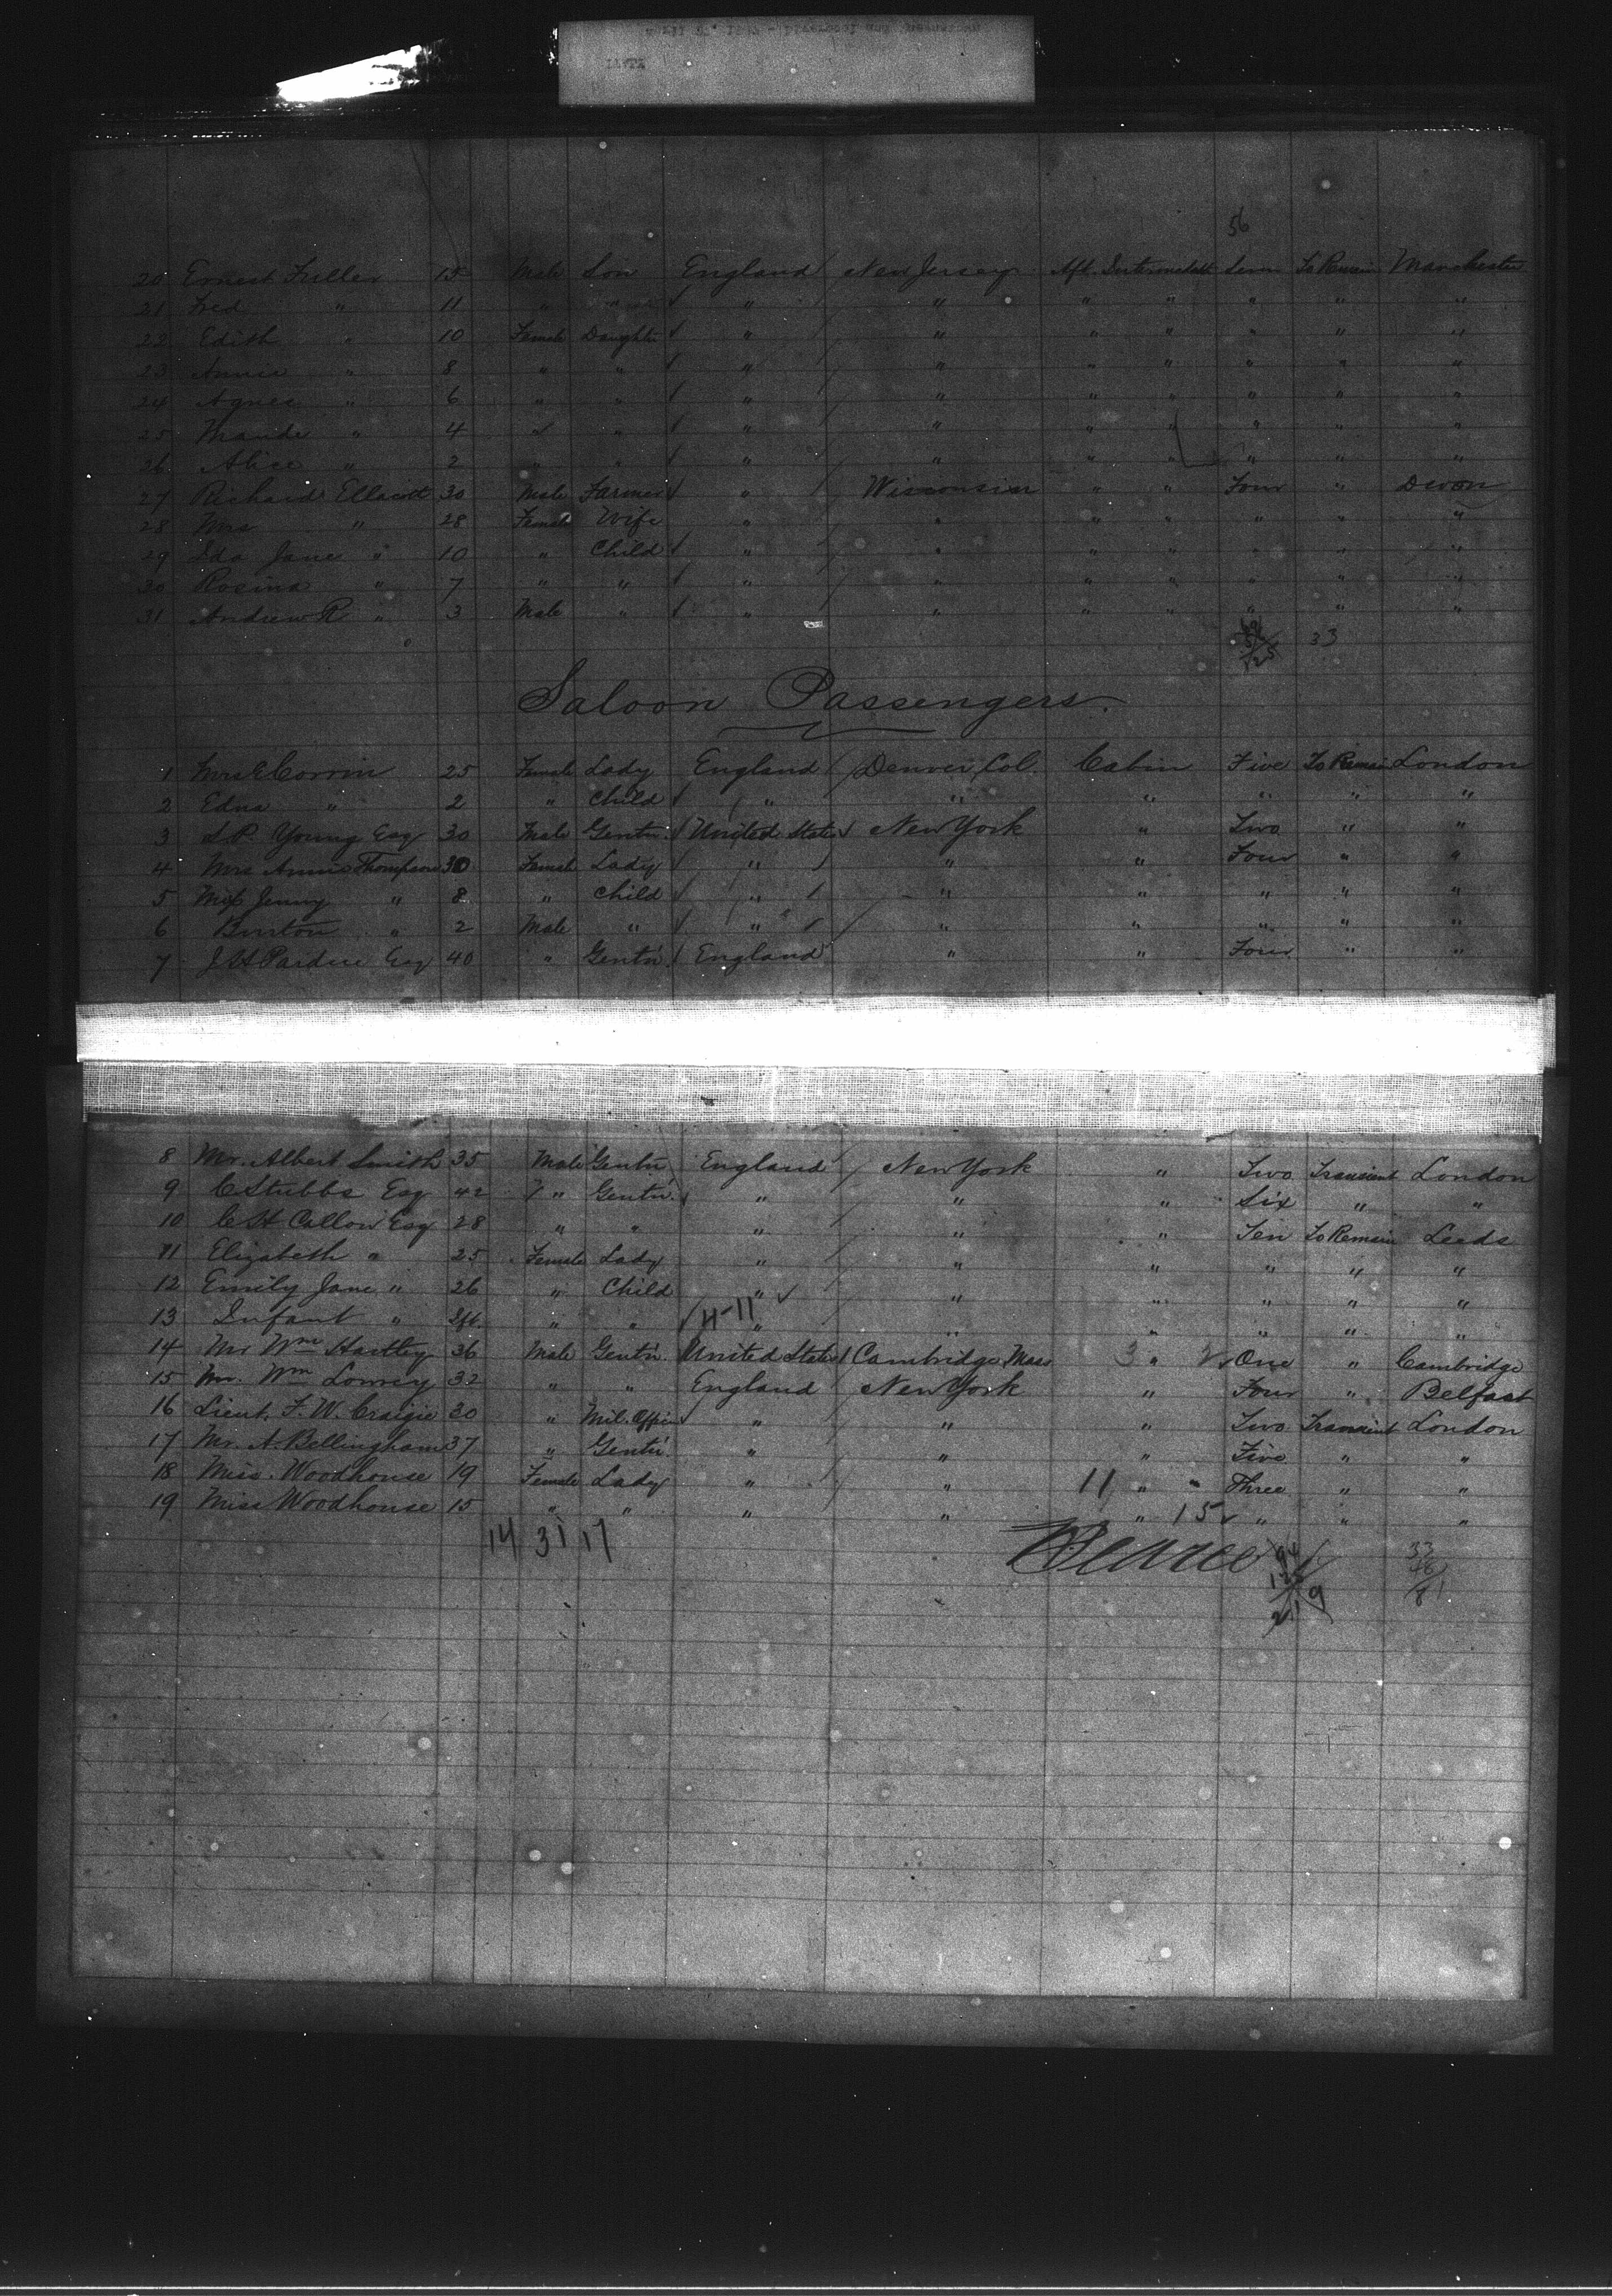 56
20 Ernest Fuller 15 Male Son England New Jersey Aft. Intermediate Seven To Remain Manchester
21 Fred " 11 " " " " " " " " "
22 Edith " 10 Female Daughter " " " " " " "
23 Annie " 8 " " " " " " " " "
24 Agnes " 6 " " " " " " " " "
25 Maude " 4 " " " " " " " " "
26 Alice " 2 " " " " " " " " "
27 Richard Ellacott 30 Male Farmer " Wisconsin " " Four " Devon
28 Mrs " 28 Female Wife " " " " " " "
29 Ida Jane " 10 " Child " " " " " " "
30 Rosina " 7 " " " " " " " " "
31 Andrew R " 3 Male " " " " " " " "
33
Saloon Passengers.
1 Mrs E Corrin 25 Female Lady England Denver, Col. Cabin Five To Remain London
2 Edna " 2 " Child " " " " " "
3 S.P. Young Esq 30 Male Gentn. United States New York " Two " "
4 Mrs Annie Thompson 30 Female Lady " " " Four " "
5 Miss Jenny " 8 " Child " " " " " "
6 Burton " 2 Male " " " " " " "
7 J H Pardue Esq 40 " Gentn. England " " Four " "
8 Mr. Albert Smith 35 Male Gentn England New York " Two Transient London
9 C Stubbs Esq 42 " Gentn. " " " Six " "
10 C H Callow Esq 28 " " " " " Ten To Remain Leeds
11 Elizabeth " 25 Female Lady " " " " " "
12 Emily Jane " 26 " Child " " " " " "
13 Infant " " " " " " " " "
4-11
14 Mr Wm Hartley 36 Male Gentn. United States Cambridge Mass 3 " One " Cambridge
15 Mr. Wm Lowry 32 " " England New York " Four " Belfast
16 Lieut. F. W. Craigie 30 " Mil. Officer " " " Two Transient London
17 Mr. A. Bellingham 37 " Gentn. " " " Five " "
18 Miss Woodhouse 19 Female Lady " " 11 " " Three " "
19 Miss Woodhouse 15 " " " " " 15 " " "
14 31 17
33